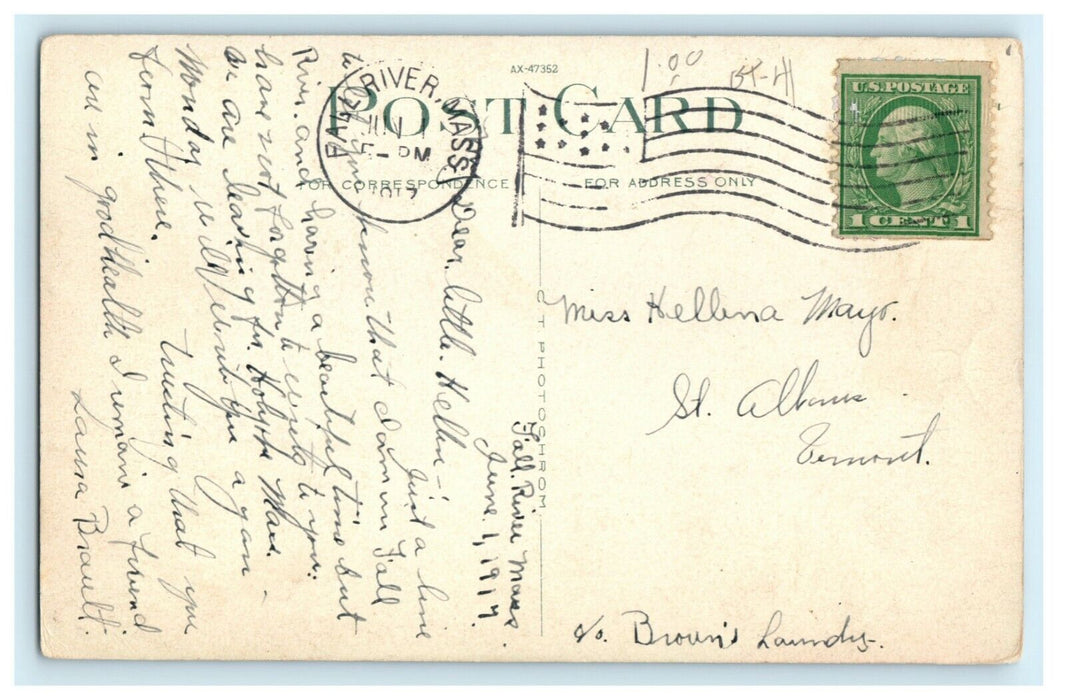 AX-47352
1.00
POST CARD
FALL RIVER, MASS.
JUN 1
5 - PM
1917
U.S. POSTAGE
1 CENTS 1
FOR CORRESPONDENCE
FOR ADDRESS ONLY
C T PHOTOCHROM
Fall River Mass.
June. 1, 1917.
Dear little Hellen -
Just a line
to let you know that I am in Fall
River. and having a beautiful time but
have not forgotten to write to you.
We are leaving for Holyoke Mass.
Monday will write you again -
from there.
trusting that you
are in good health I remain a friend
Laura Brault.
Miss Hellena Mayo.
St. Albans
Vermont.
c/o. Brown's Laundry.